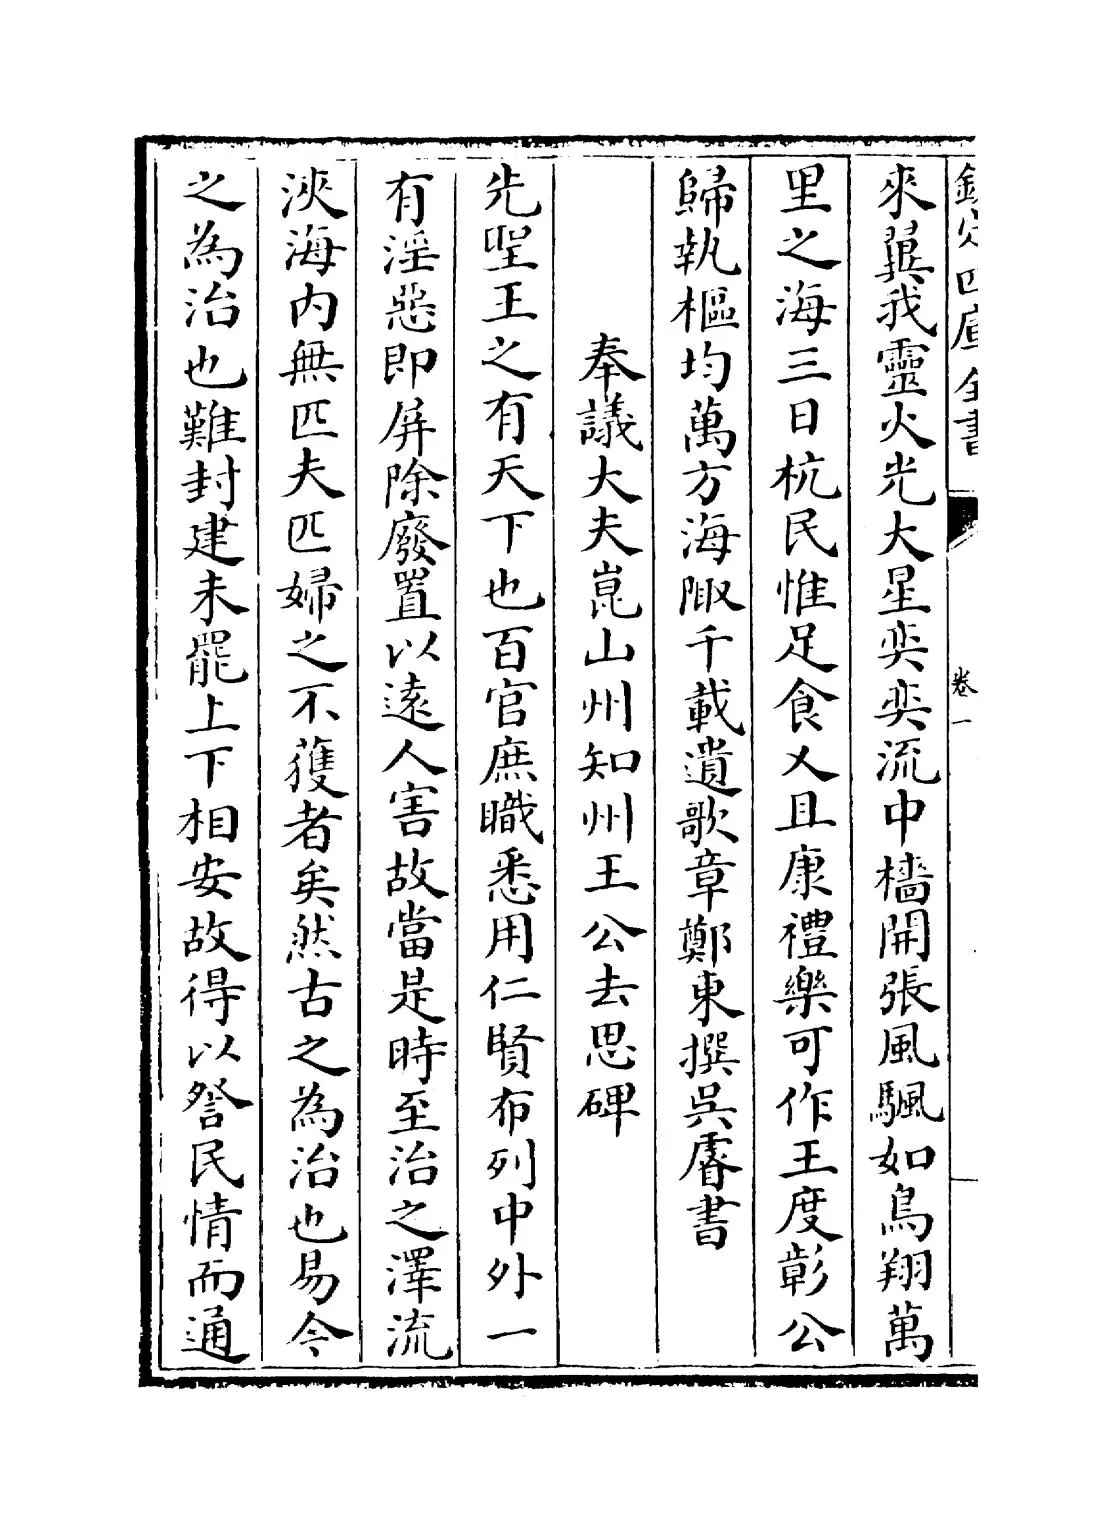 欽定四庫全書
卷一
來翼我靈火光大星奕奕流中檣開張風颿如鳥翔萬
里之海三日杭民惟足食乂且康禮樂可作王度彰公
歸執樞均萬方海陬千載遺歌章鄭東撰吳睿書
奉議大夫崑山州知州王公去思碑
先聖王之有天下也百官庶職悉用仁賢布列中外一
有淫惡即屏除廢置以遠人害故當是時至治之澤流
浹海内無匹夫匹婦之不獲者矣然古之為治也易今
之為治也難封建未罷上下相安故得以詧民情而通